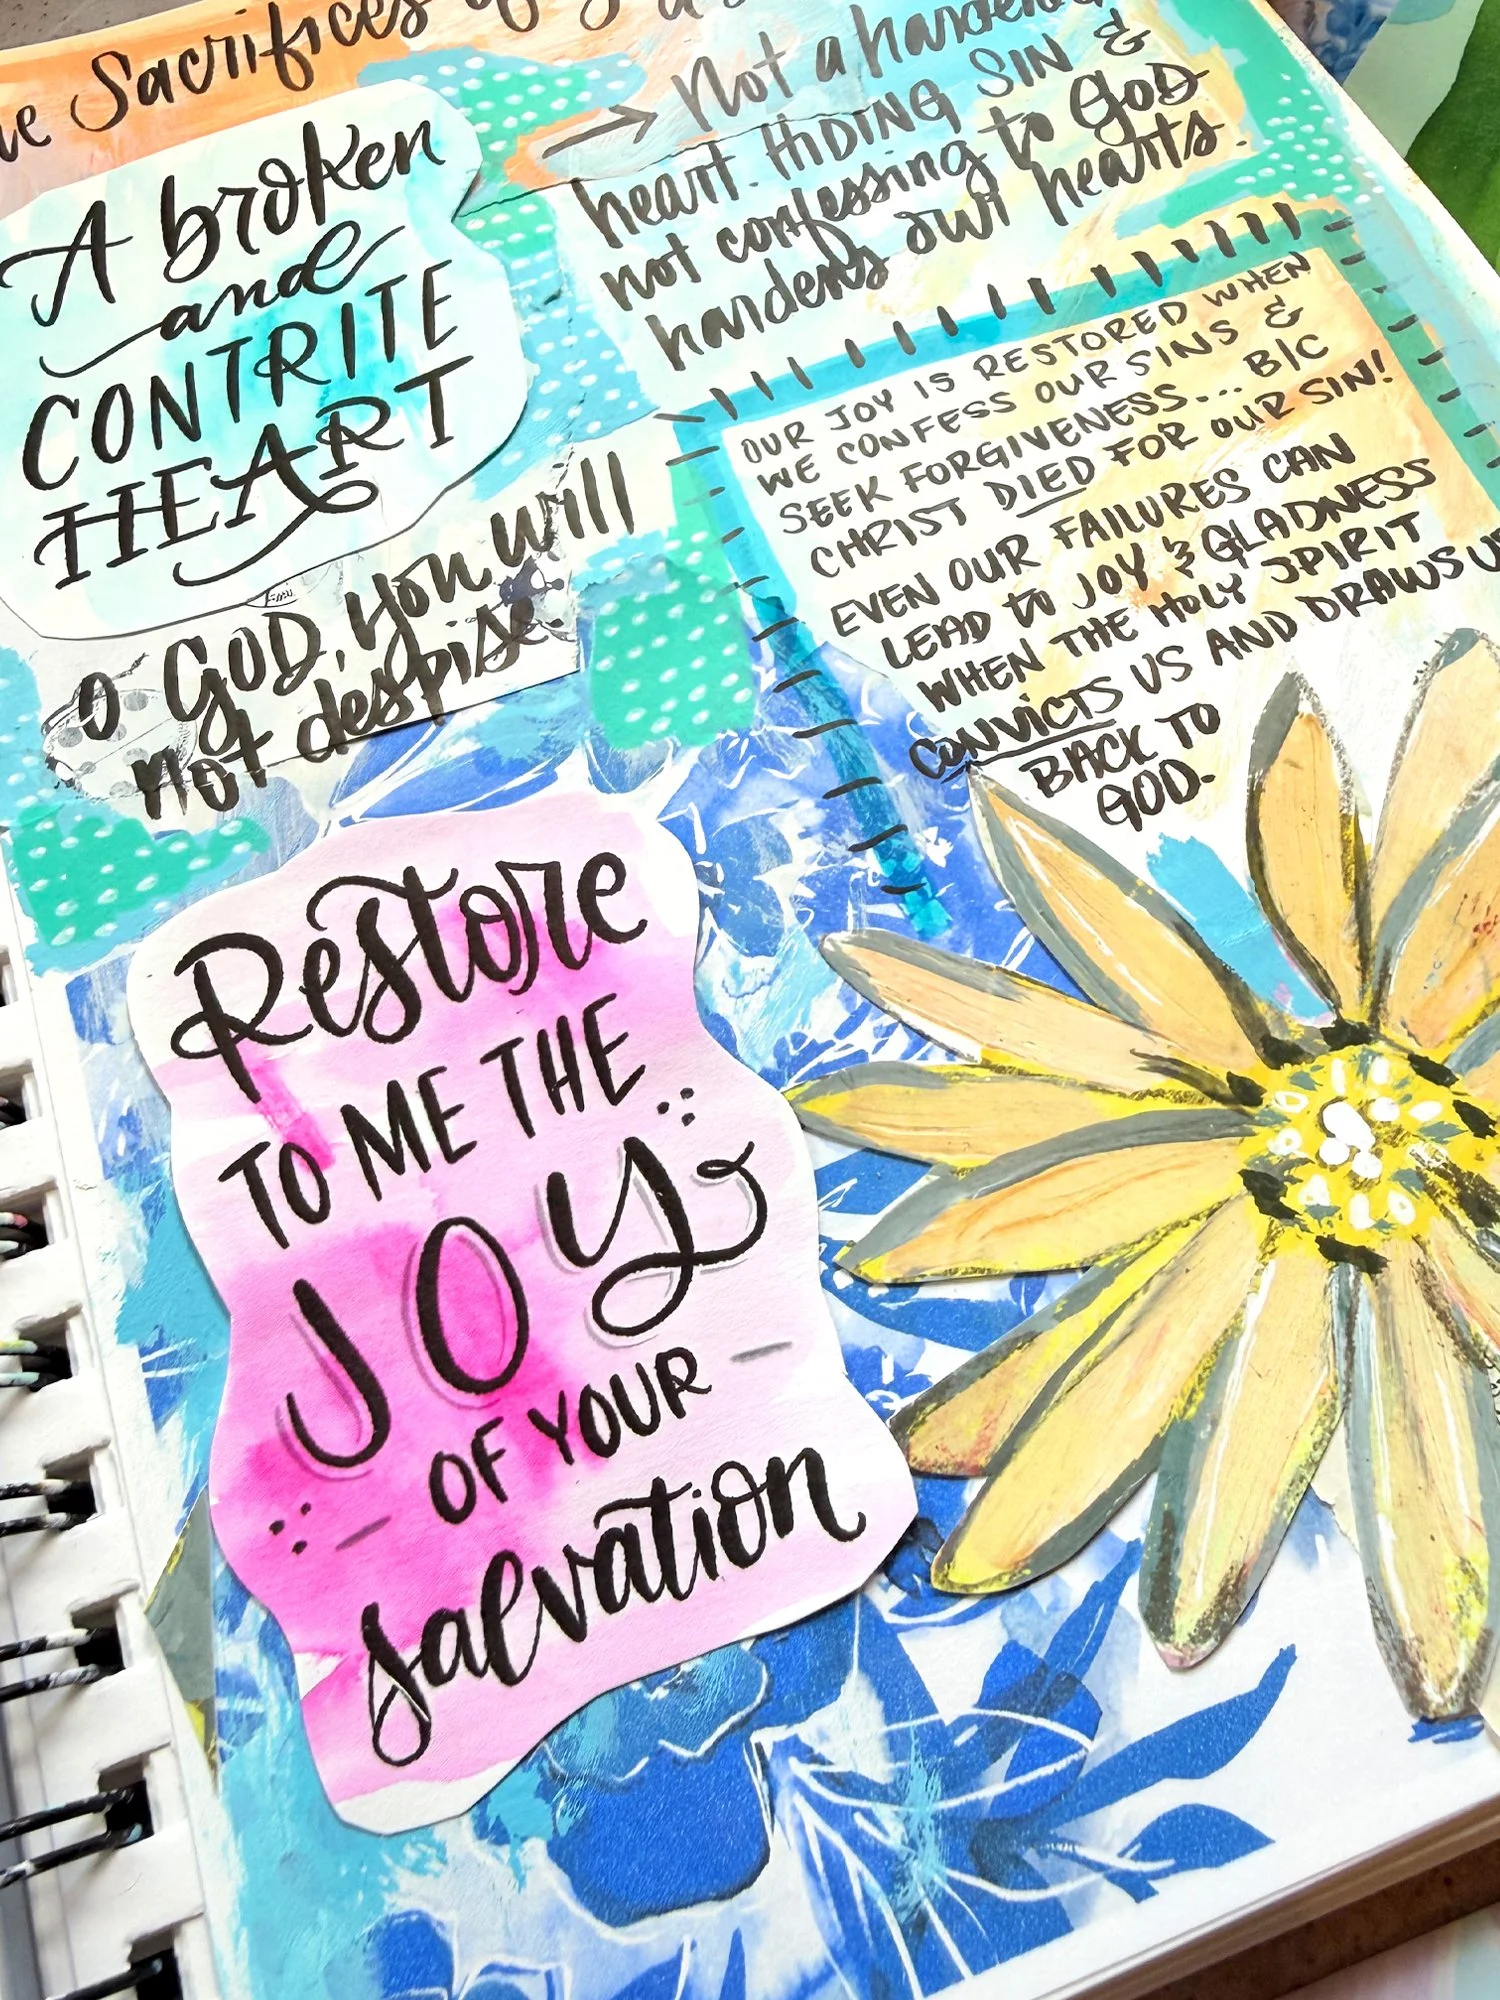 Sacrifices
A broken
and
CONTRITE
HEART
o GOD, you will
not despise.
→ Not a
heart. HiDING SIN &
not confessing to GOD
hardens our hearts.
OUR JOY IS RESTORED WHEN
WE CONFESS OUR SINS &
SEEK FORGIVENESS... B/C
CHRIST DIED FOR OUR SIN!
EVEN OUR FAILURES CAN
LEAD to JOY & GLADNESS
WHEN THE HOLY SPIRIT
CONVICTS US AND DRAWS
BACK TO
GOD.
Restore
TO ME THE
JOY
OF YOUR
salvation